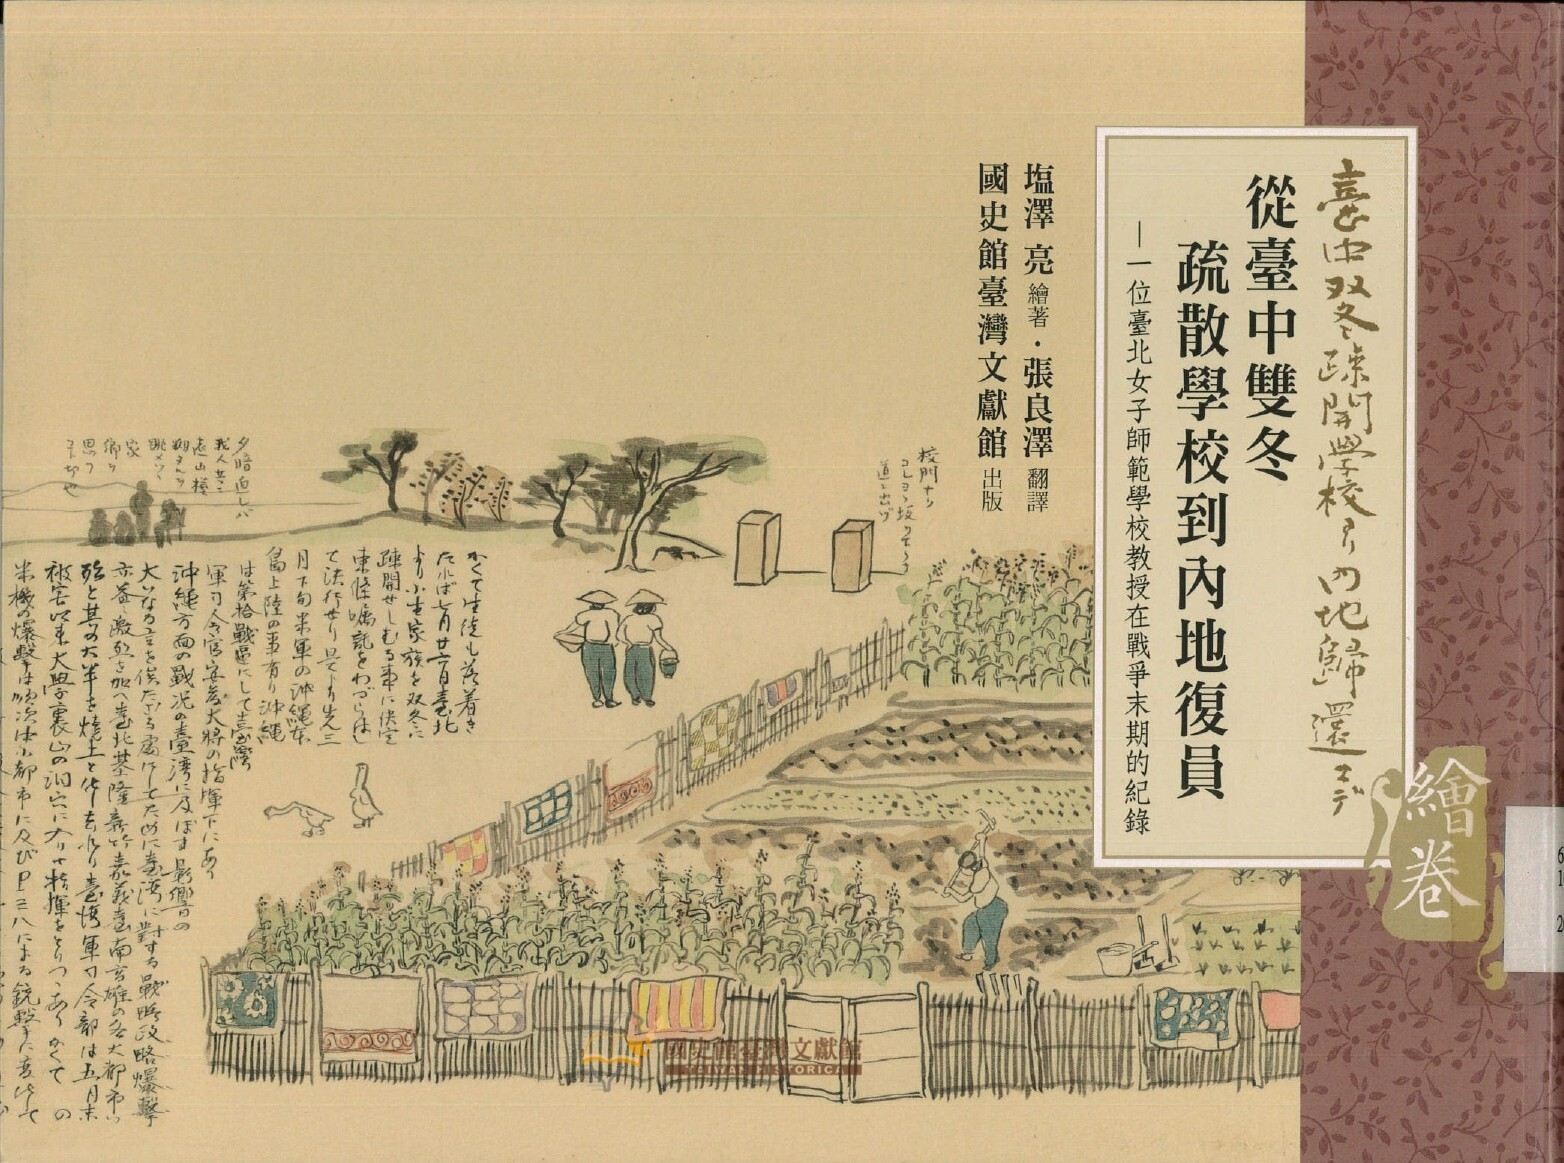 臺中双冬疎開學校ヨリ内地歸還マデ
從臺中雙冬
疏散學校到內地復員
—一位臺北女子師範學校教授在戰爭末期的紀錄
繪卷
塩澤 亮 繪著・張良澤 翻譯
國史館臺灣文獻館 出版
校門ナリ
道ニ出ヅ
かくて生徒も落着き
たれば七月廿一日臺北
より小生家族を双冬に
疎開せしむる事に決定
東條嘱託をわづらはし
て決行せり是より先三
月下旬米軍の沖縄本
島上陸の事有り沖縄
は第拾戰區にして臺灣
軍司令官安藤大將の指揮下にあり
沖縄方面の戰況の臺灣に及ぼす影響の
大いなる言を俟たざる處にしてために臺灣に對する戰略政略爆撃
亦益激烈を加へ臺北基隆新竹嘉義臺南高雄の各大都市は
殆と其の大半を焼土と化し去れり臺灣軍司令部は五月末
被害以来大學裏山の洞穴に入りて指揮をとりつゝありかくて の
米機の爆撃は漸次は小都市に及びP三八による銃撃に
國史館臺灣文獻館
TAIWAN HISTORICA